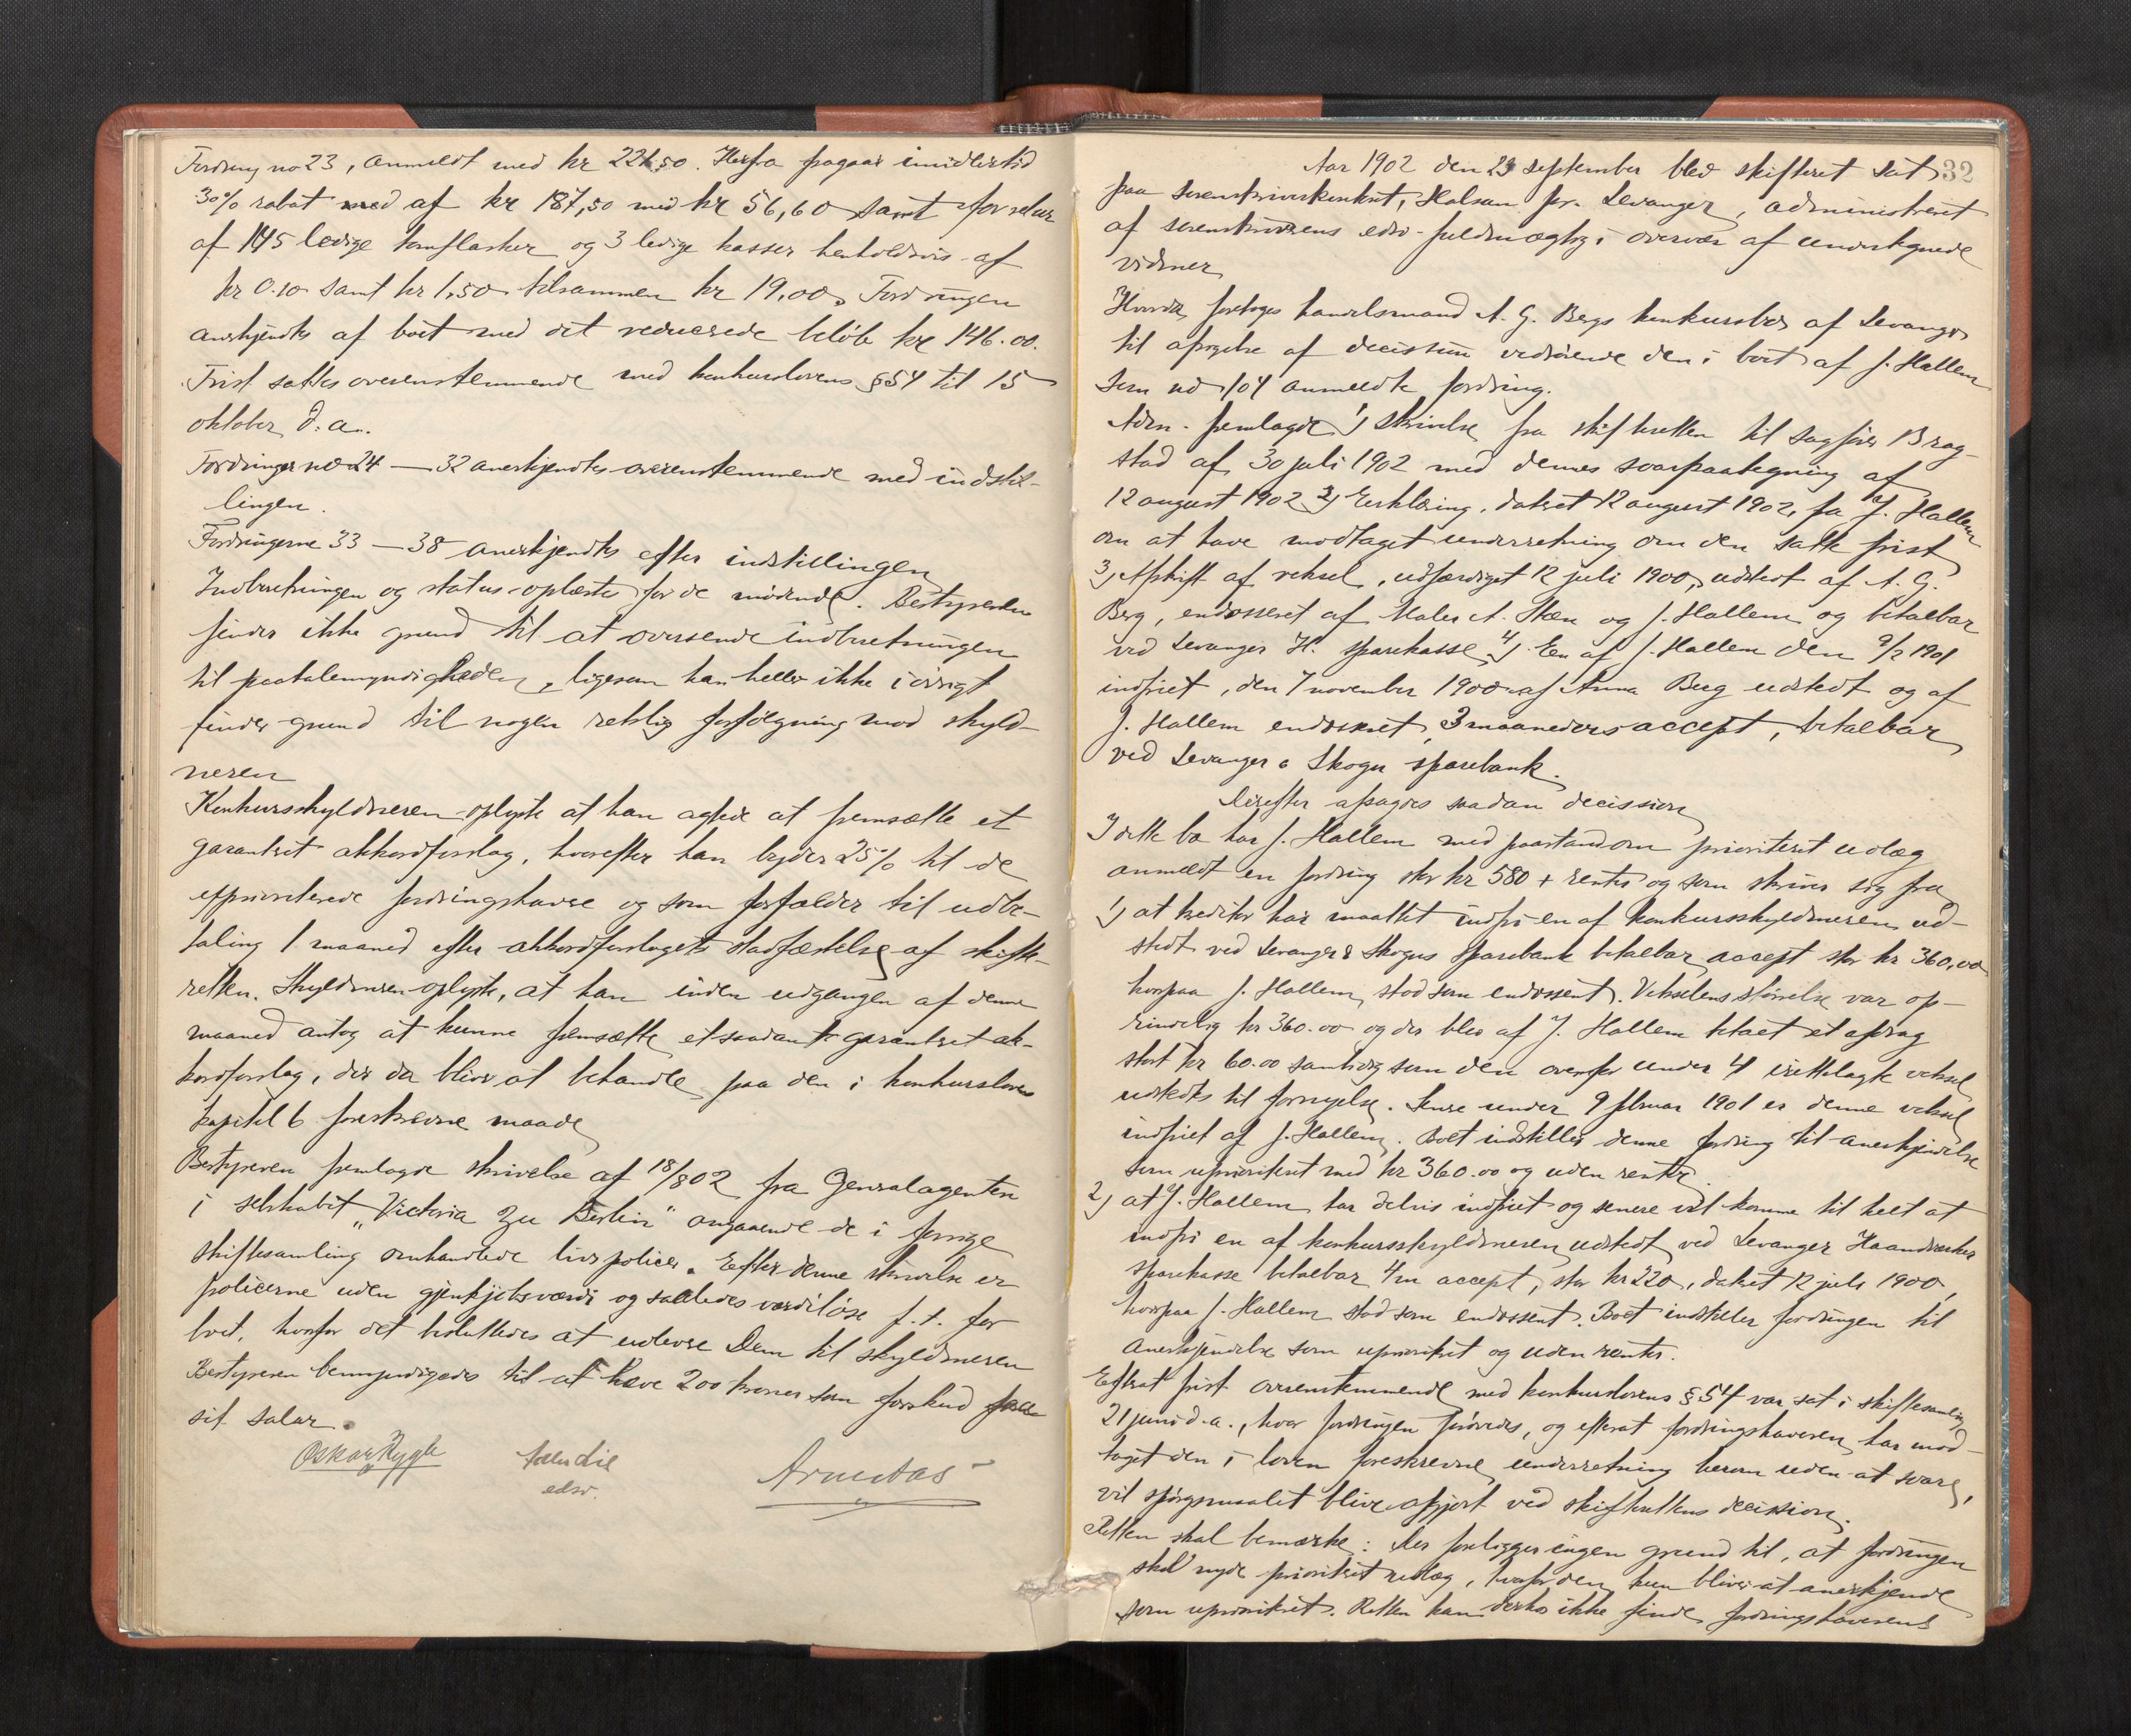 Fordring no 23, anmeldt med kr 221.50. Herfra fragaar imidlertid
30% rabat med af kr 187,50 med kr 56,60 samt for retur
af 145 ledige tomflasker og 3 ledige kasser henholdsvis af
kr 0.10 samt kr 1,50 tilsammen kr 19,00. Fordringen
anerkjendtes af boet med det reducerede beløb kr 146.00.
Frist sattes overensstemmende med konkurslovens § 54 til 15
oktober d. a.
Fordringer no 24 — 32 anerkjendtes overenstemmende med indstil-
lingen.
Fordringerne 33 — 38 anerkjendtes efter indstillingen
Indberetningen og status oplæstes for de mødende. Bestyreren
finder ikke grund til at oversende indberetningen
til paatalemyndigheden, ligesom han heller ikke iøvrigt
finder grund til nogen retslig forfølgning mod skyld-
neren
Konkursskyldneren oplyste at han agtede at fremsætte et
garanteret akkordforslag, hvorefter han byder 25% til de
uprioriterede fordringshavere og som forfalder til udbe-
taling 1 maaned efter akkordforslagets stadfæstelse af skifte-
retten. Skyldneren oplyste, at han inden udgangen af denne
maaned antog at kunne fremsætte et saadant garanteret ak-
kordforslag, der da bliver at behandle paa den i konkursloven
kapitel 6 foreskrevne maade
Bestyreren fremlagde skrivelse af 18/8 02 fra Generalagenten
i selskabet "Victoria zu Berlin" angaaende de i forrige
skiftesamling omhandlede livspolicer. Efter denne skrivelse er
policerne uden gjenkjøbsværdi og saaledes værdiløse f. t. for
boet, hvorfor det besluttedes at udlevere dem til skyldneren
Bestyreren bemyndigedes til at hæve 200 kroner som forskud paa
sit salar.
Oskar Rygh
edsv.
32
Aar 1902 den 23 september blev skifteret sat
paa sorenskriverkontoret, Halsan pr. Levanger, administreret
af sorenskriverens edsv. fuldmægtig i overvær af undertegnede
vidner
Hvorda foretoges handelsmand A. G. Bergs konkursbo af Levanger
til afsigelse af decission vedrørende den i boet af J. Hallem
som no 104 anmeldte fordring.
Adm. fremlagde 1) Skrivelse fra skifteretten til sagfører Brag-
stad af 30 juli 1902 med dennes svarpaategning af
12 august 1902 2) Erklæring, dateret 12 august 1902, fra J. Hallem
om at have modtaget underretning om den satte frist
3) Afskrift af veksel, udfærdiget 12 juli 1900, udstedt af A. G.
Berg, endosseret af Maler A. Steen og J. Hallem og betalbar
ved Levanger H. sparekasse 4) En af J. Hallem den 9/2 1901
indfriet, den 7 november 1900 af Anna Berg udstedt og af
J. Hallem endosseret, 3 maaneders accept, betalbar
ved Levanger & Skogn sparebank.
Derefter afsagdes saadan decission
I dette bo har J. Hallem med paastand om prioriteret udlæg
anmeldt en fordring stor kr 580 + renter og som skriver sig fra
1) at kreditor har maattet indfri en af konkursskyldneren ud-
stedt ved Levanger & Skogns Sparebank betalbar accept stor kr 360,00
hvorpaa J. Hallem stod som endossent. Vekselens størrelse var op-
rindelig kr 360.00 og der blev af J. Hallem betalt et afdrag
stort kr 60.00 samtidig som den ovenfor under 4 irettelagte veksel
udstedtes til fornyelse. Senere under 9 februar 1901 er denne veksel
indfriet af J. Hallem. Boet indstiller denne fordring til anerkjendelse
som uprioriteret med kr 360.00 og uden renter.
2) at J. Hallem har delvis indfriet og senere vil komme til helt at
indfri en af konkursskyldneren udstedt ved Levanger Haandverker
sparekasse betalbar 4/m accept, stor kr 220, dateret 12 juli 1900,
hvorpaa J. Hallem stod som endossent. Boet indstiller fordringen til
anerkjendelse som uprioriteret og uden renter.
Efterat frist overenstemmende med konkurslovens § 54 var sat i skiftesamling
21 juni d. a., hvor fordringen prøvedes, og efterat fordringshaveren har mod-
taget den i loven foreskrevne underretning herom uden at svare,
vil spørgsmaalet blive afgjort ved skifterettens decission.
Retten skal bemærke: Der foreligger ingen grund til, at fordringen
skal nyde prioriteret udlæg, hvorfor den kun bliver at anerkjende
som uprioriteret. Retten kan derhos ikke finde fordringshaverens